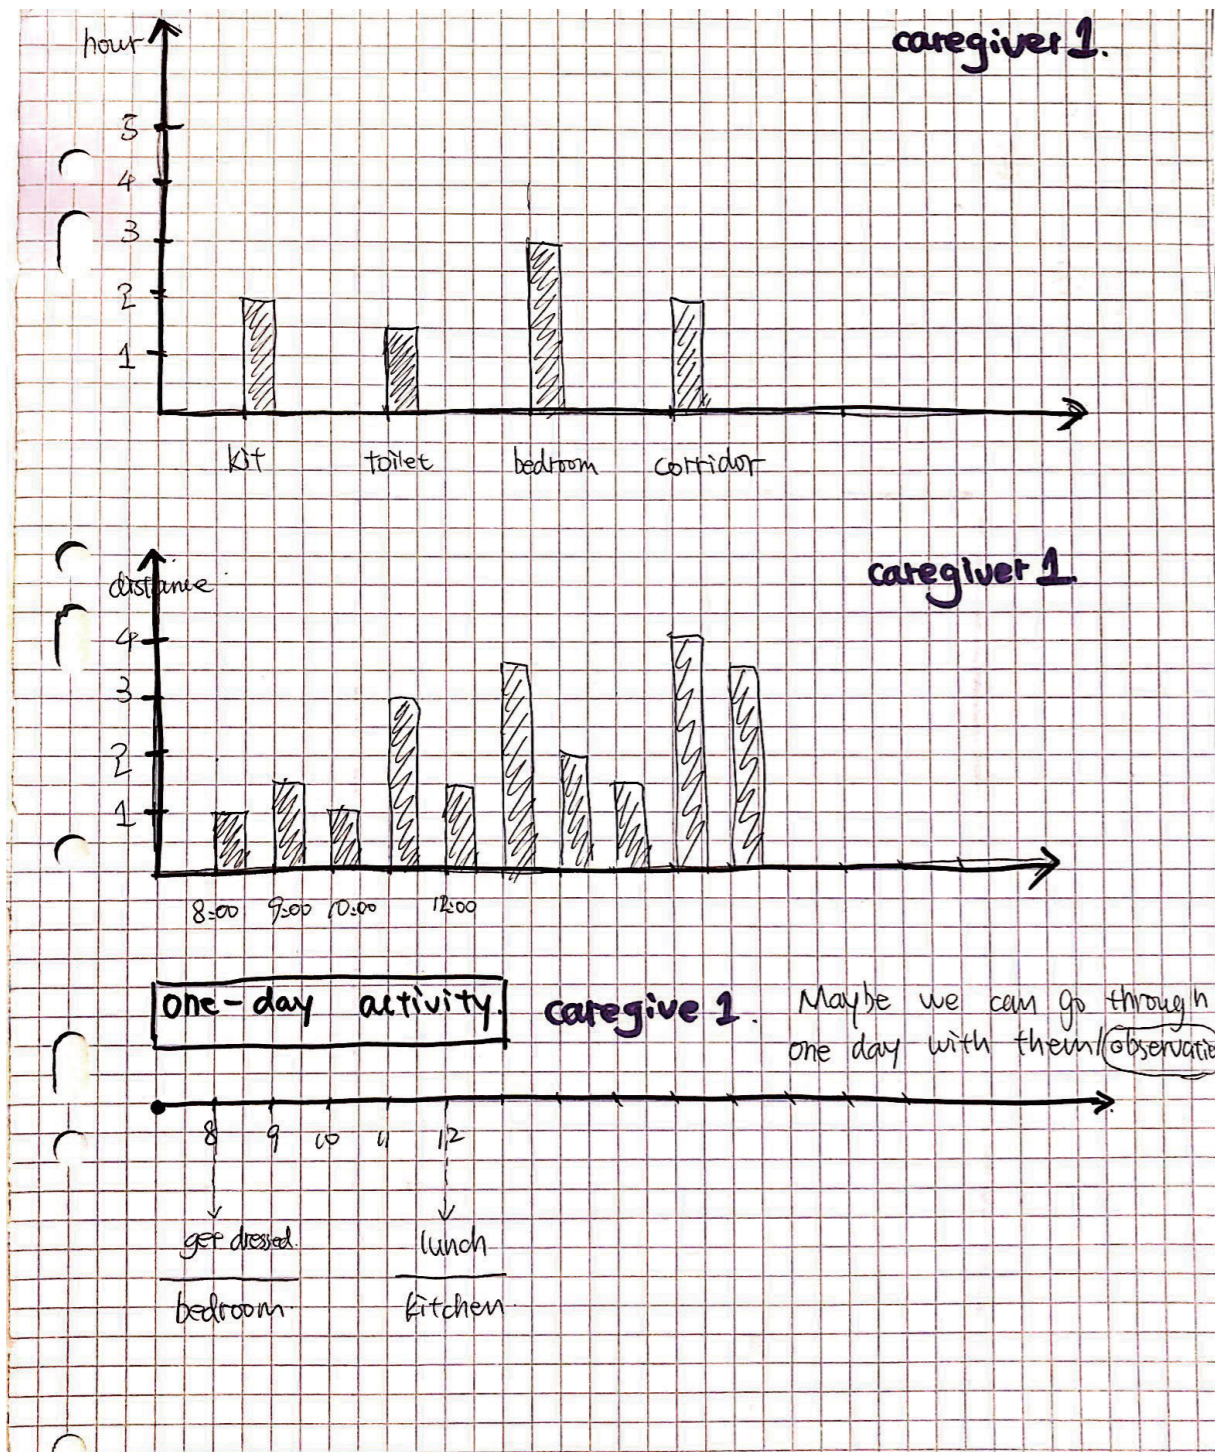 hour
caregiver 1.
5
4
3
2
1
kit toilet bedroom corridor
distance
caregiver 1.
4
3
2
1
8:00 9:00 10:00 12:00
one-day activity. caregive 1. Maybe we can go through
one day with them/observatio
8 9 10 11 12
get dressed. lunch
bedroom. kitchen.